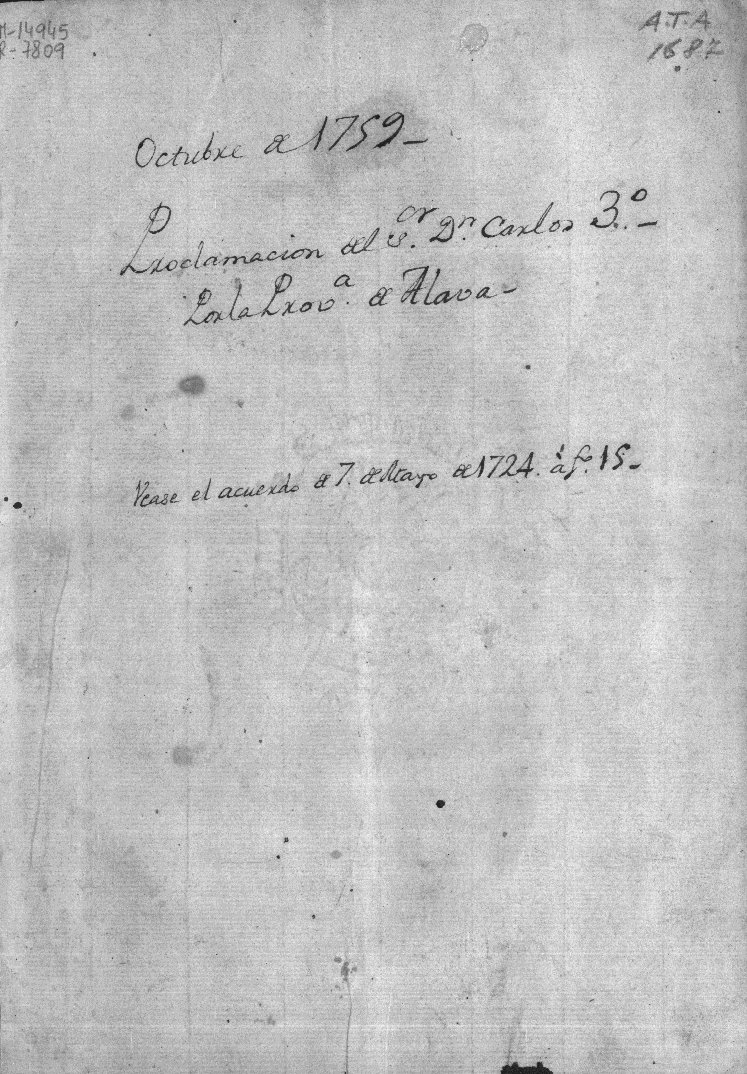 M-14945
R-7809
A.T.A
1687
Octubre de 1759-
Proclamacion del S.or Dn. Carlos 3.º-
Por la Prov.a de Alava-
Vease el acuerdo de 7. de Mayo de 1724. à fº. 15-